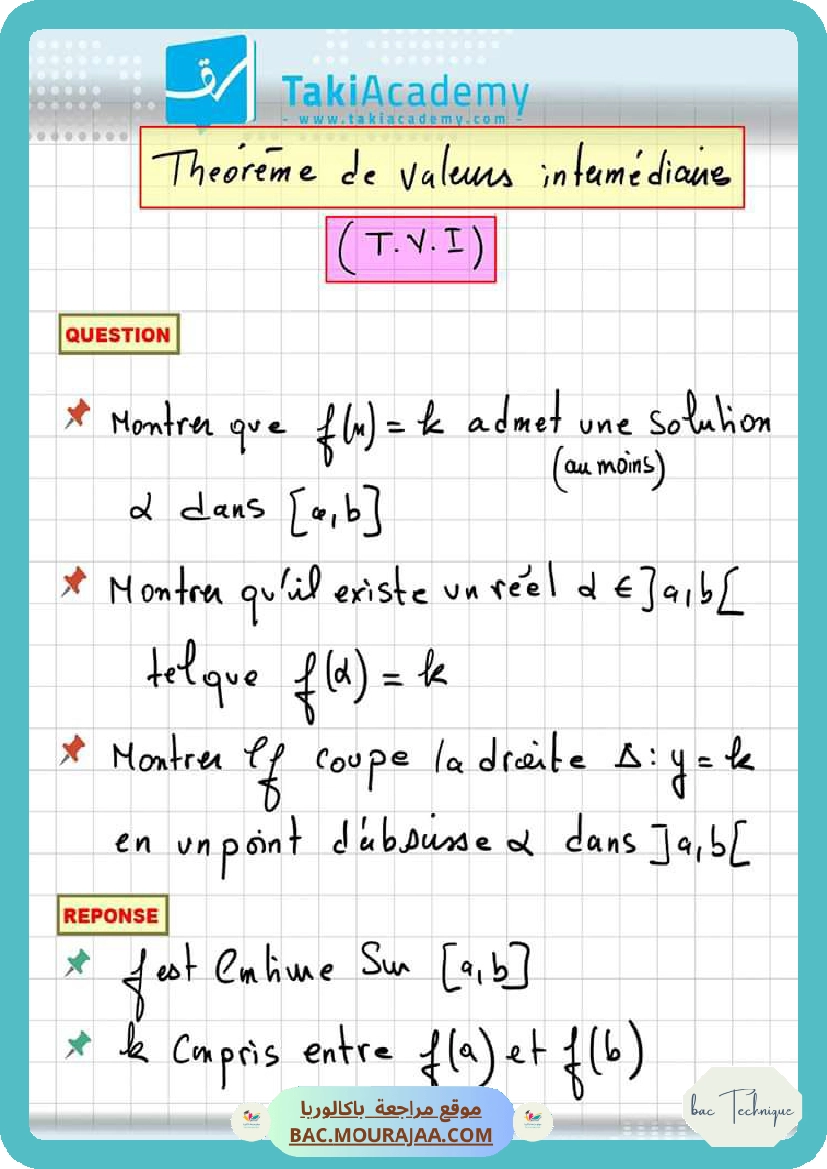 TakiAcademy
- www.takiacademy.com -
Théorème de valeurs intermédiaire
(T.V.I)
QUESTION
Montrer que f(x) = k admet une solution
(au moins)
α dans [a,b]
Montrer qu'il existe un réel α ∈ ]a,b[
tel que f(α) = k
Montrer ℓf coupe la droite Δ: y = k
en un point d'abscisse α dans ]a,b[
REPONSE
f est Continue Sur [a,b]
k Compris entre f(a) et f(b)
موقع مراجعة باكالوريا
BAC.MOURAJAA.COM
bac Technique